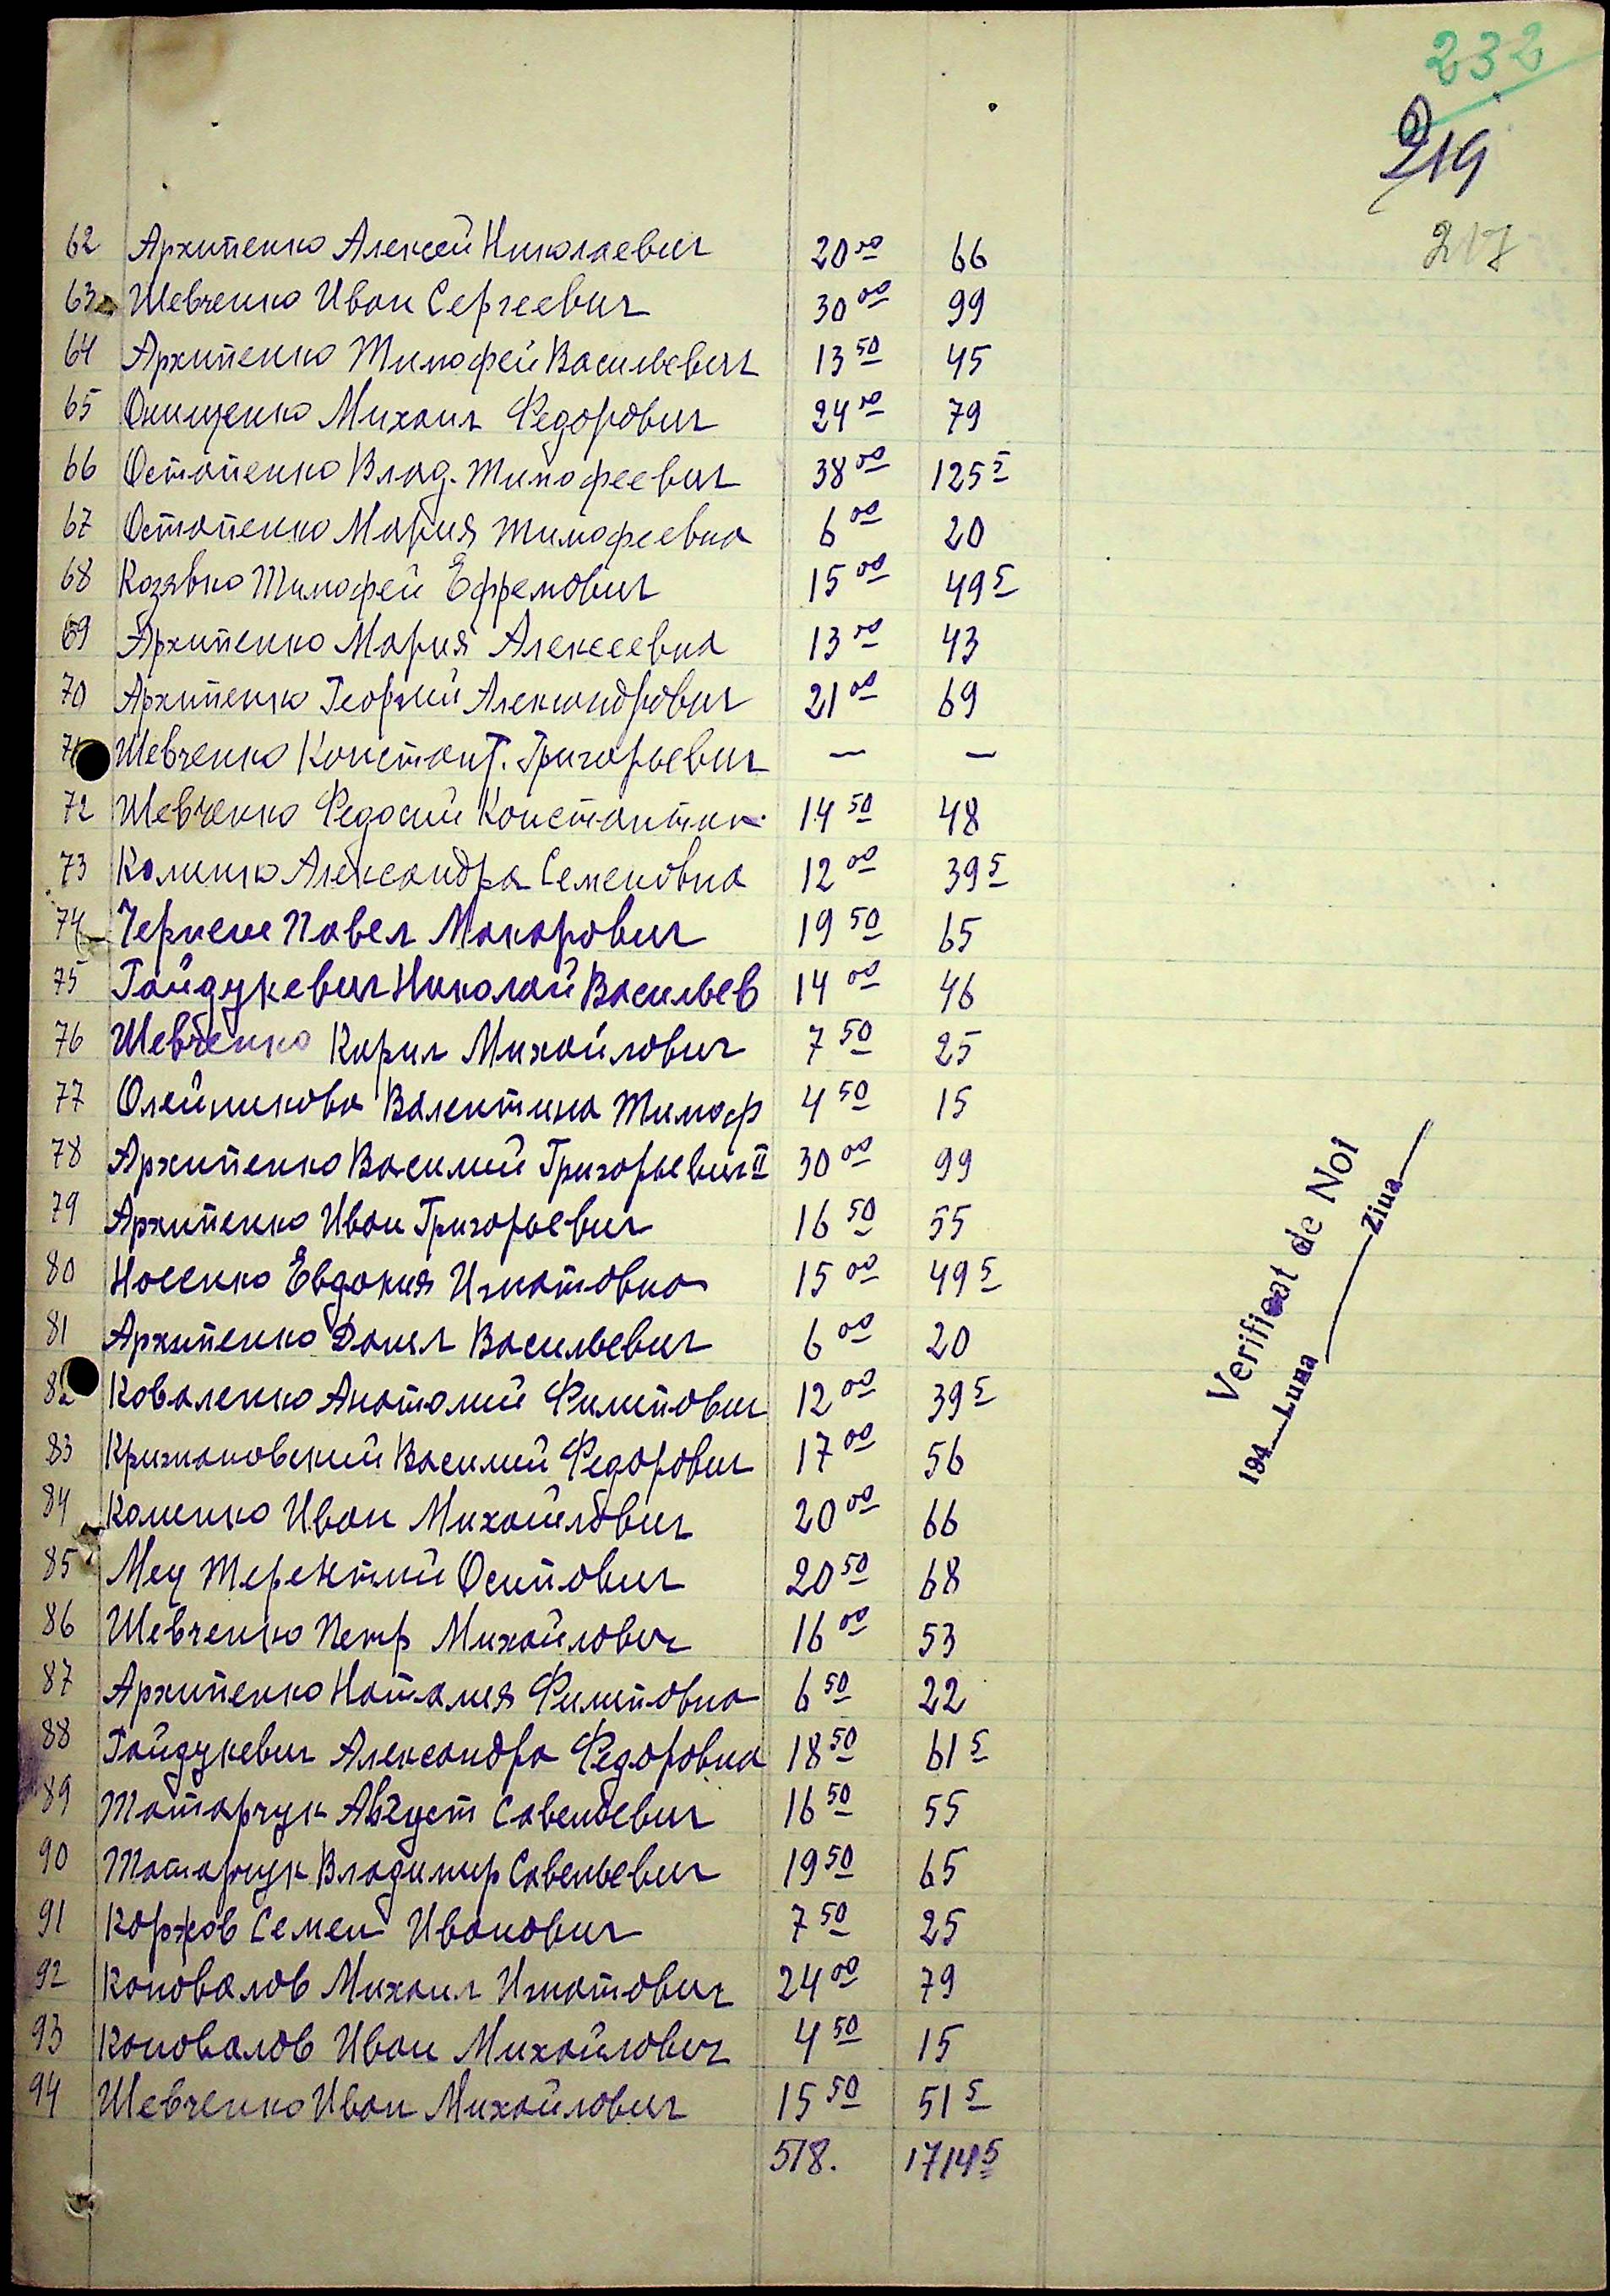 232
219
217
62 Архипенко Алексей Николаевич 20 00 66
63 Шевченко Иван Сергеевич 30 00 99
64 Архипенко Тимофей Васильевич 13 50 45
65 Онищенко Михаил Федорович 24 00 79
66 Остапенко Влад. Тимофеевич 38 00 125 5
67 Остапенко Мария Тимофеевна 6 00 20
68 Козявко Тимофей Ефремович 15 00 49 5
69 Архипенко Мария Алексеевна 13 00 43
70 Архипенко Георгий Александрович 21 00 69
71 Шевченко Констант. Григорьевич — —
72 Шевченко Федосий Константин. 14 50 48
73 Коленко Александра Семеновна 12 00 39 5
74 Чернеге Павел Макарович 19 50 65
75 Гайдукевич Николай Васильев 14 00 46
76 Шевченко Кирил Михайлович 7 50 25
77 Олейникова Валентина Тимоф 4 50 15
78 Архипенко Василий Григорьевич II 30 00 99
79 Архипенко Иван Григорьевич 16 50 55
80 Носенко Евдокия Игнатовна 15 00 49 5
81 Архипенко Данил Васильевич 6 00 20
82 Коваленко Анатолий Филипович 12 00 39 5
83 Крижановский Василий Федорович 17 00 56
84 Коленко Иван Михайлович 20 00 66
85 Мец Терентий Осипович 20 50 68
86 Шевченко Петр Михайлович 16 00 53
87 Архипенко Наталия Филиповна 6 50 22
88 Гайдукевич Александра Федоровна 18 50 61 5
89 Татарчук Август Савельевич 16 50 55
90 Татарчук Владимир Савельевич 19 50 65
91 Коржов Семен Иванович 7 50 25
92 Коновалов Михаил Игнатович 24 00 79
93 Коновалов Иван Михайлович 4 50 15
94 Шевченко Иван Михайлович 15 50 51 5
518. 1714 5
Verificat de Noi
194 Luna Ziua